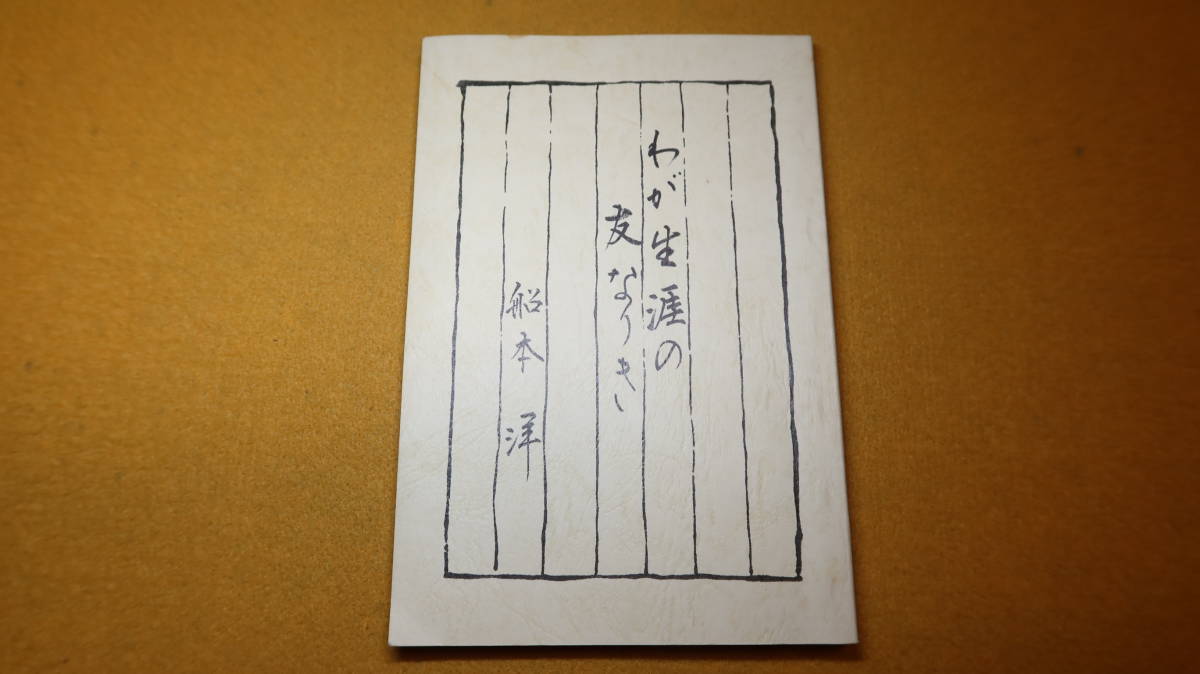 わが生涯の
友なりき
船本 洋